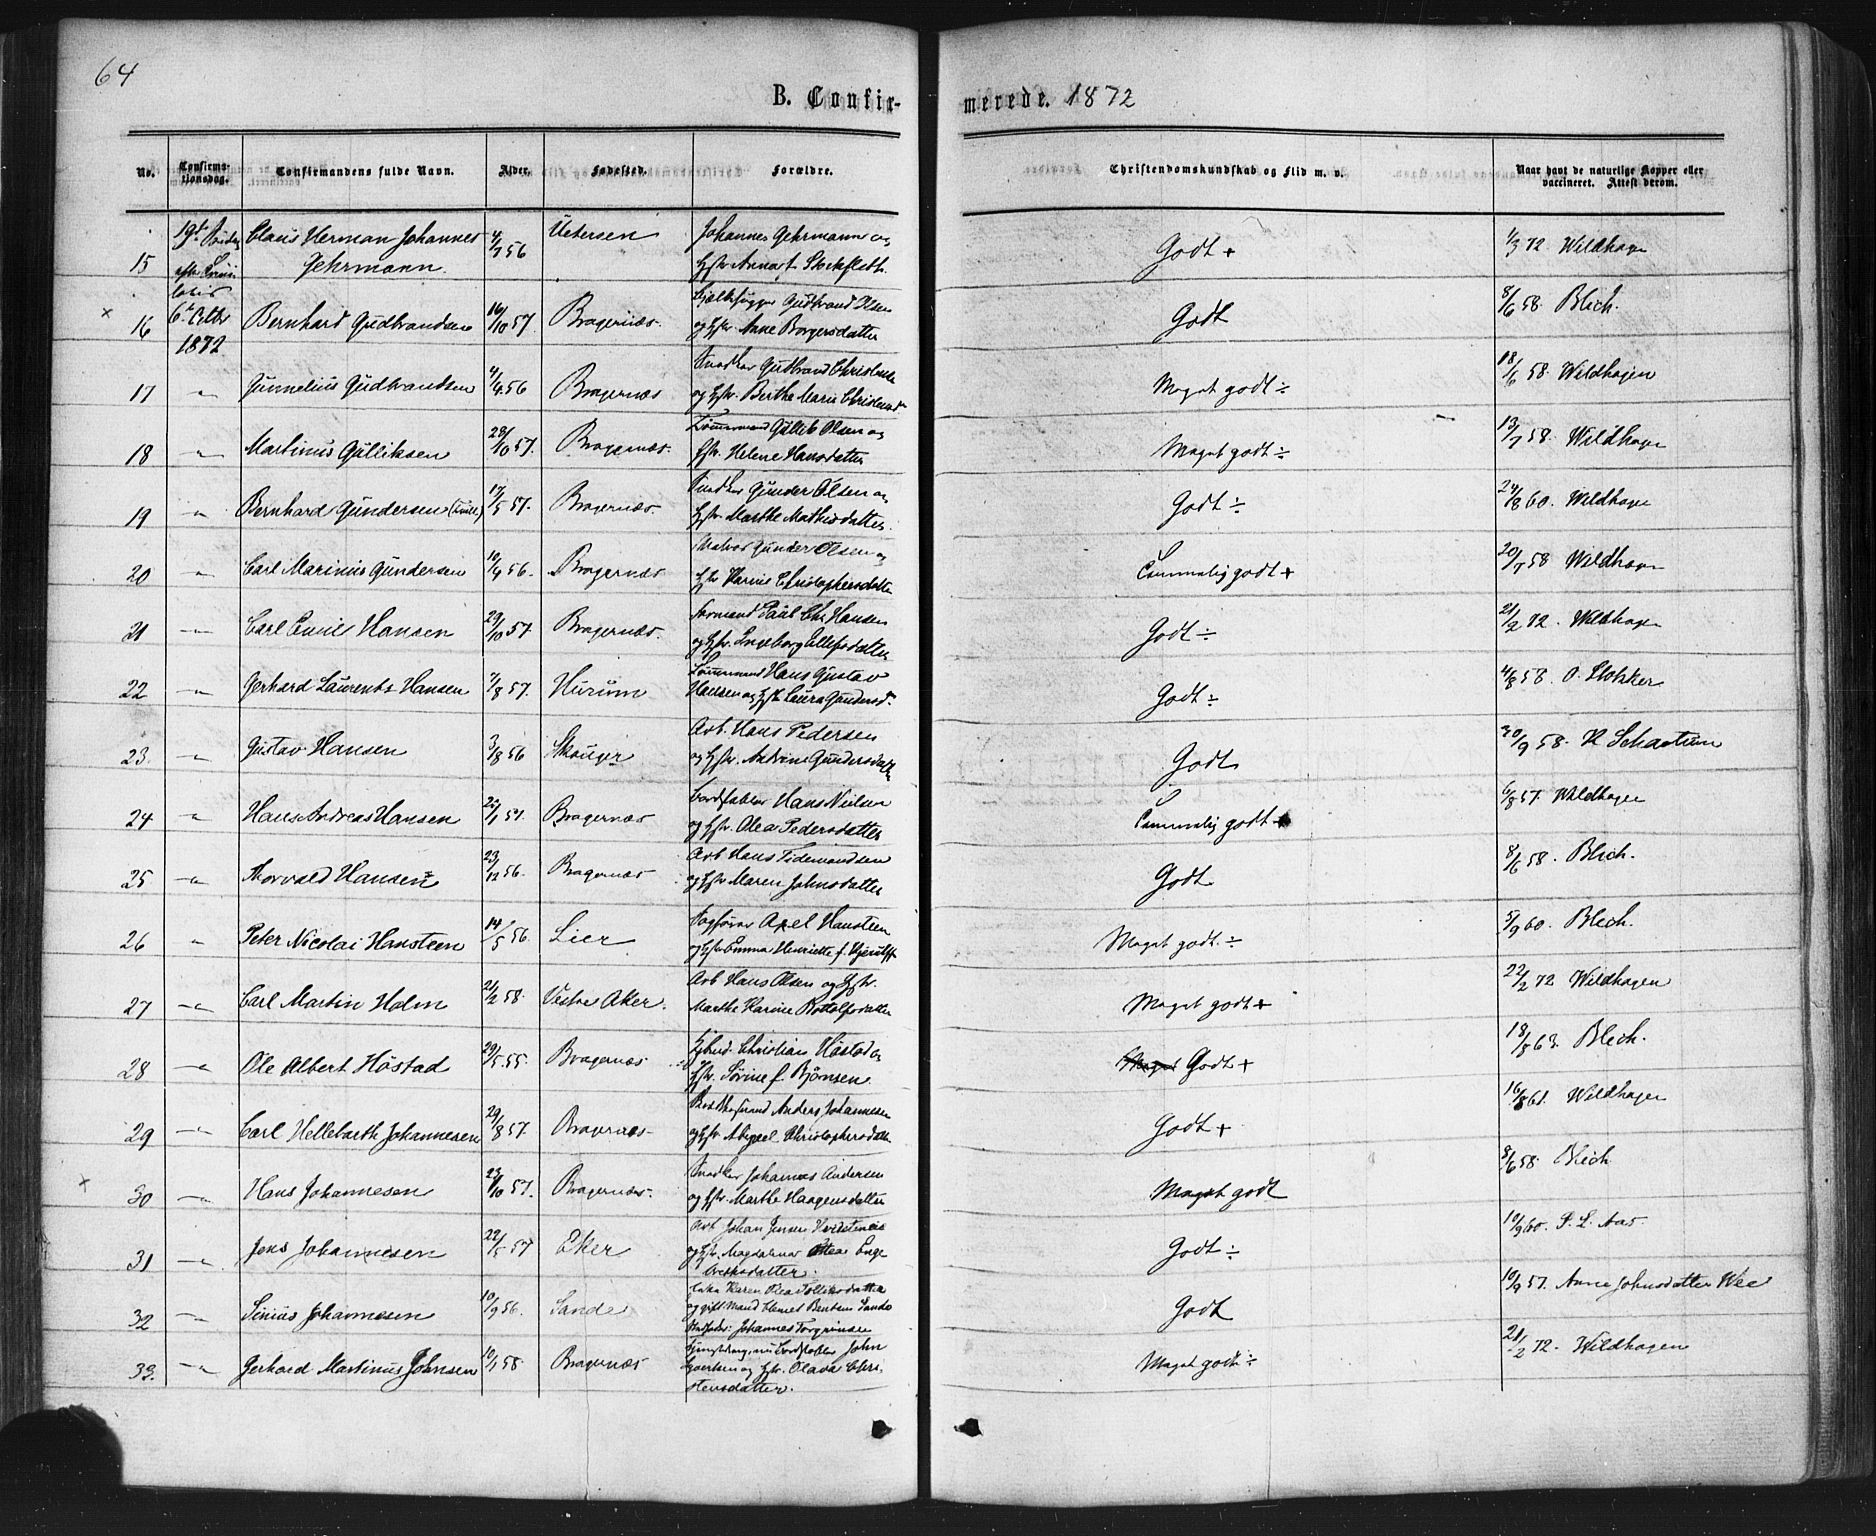 64
B. Confir-
merede. 1872
No.
Confirma-
tionsdag.
Confirmandens fulde Navn.
Alder.
Fødested.
Forældre.
Christendomskundskab og Flid m. v.
Naar havt de naturlige Kopper eller
vaccineret. Attest derom.
15 19de Søndag Claus Herman Johannes 4/7 56 Uetersen Johannes Gehrmann og Godt + 1/3 72 Wildhagen
Gehrmann. Hstr Anna f. Stockfleth.
6te Octbr
1872
16 Bernhard Gudbrandsen 16/10 57. Bragernæs. Gudbrand Olsen Godt 8/6 58. Blich.
og Hstr. Anne Borgersdatter
17 " Gunnelius Gudbrandsen 4/9 56 Bragernæs Snedker Gudbrand Meget godt ÷ 18/6 58. Wildhagen
og Hstr. Berthe Marie
18 " Martinus Gulliksen 28/10 57. Bragernæs. Tømmermand Gullik Olsen og Meget godt ÷ 13/7 58. Wildhagen
Hstr. Helene Hansdatter
19 " Bernhard Gundersen 17/5 57. Bragernæs. Snedker Gunder Olsen og Godt ÷ 24/8 60. Wildhagen
Hstr. Marthe Mathisdatter.
20 " Carl Marinus Gundersen 10/9 56. Bragernæs Gunder Olsen og Temmelig godt + 20/7 58 Wildhagen
Hstr Karine Christophersdatter
21 " Carl Emil Hansen 29/10 57 Bragernæs. Formand Paul Chr. Hansen Godt ÷ 21/2 72. Wildhagen
og Hstr. Ingeborg Ellefsdatter
22 " Gerhard Laurents Hansen 7/8 57. Hurum Tømmermand Hans Gustav Godt ÷ 4/8 58. O. Stokker
Hansen og Hstr Laura Gundersd.
23. " Gustav Hansen 3/8 56 Skouger Arb. Hans Pedersen Godt 30/9 58.
og Hstr. Andrine Gundersdatter
24 " Hans Andreas Hansen Bragernæs Bordstabler Hans Nielsen Temmelig godt + 6/8 57. Wildhagen
og Hstr. Olea Pedersdatter
25 " Thorvald Hansen 23/12 56. Bragernæs Arb Hans Tidemandsen Godt 8/6 58. Blich.
og Hstr Maren Johnsdatter
26 " Peter Nicolai Hansteen 14/5 56. Lier Sagfører Axel Hansteen Meget godt ÷ 5/9 60. Blich.
og Hstr Emma Henriette f. Kjerulff
27 " Carl Martin Holm 21/2 58. Vestre Aker. Arb Hans Olsen og Hstr. Meget godt + 22/2 72 Wildhagen
Marthe Karine
28 " Ole Albert Höstad 29/5 55. Bragernæs Christian Höstad og Meget Godt + 18/8 63. Blich.
Hstr. Sørine f. Bjønsen.
29 " Carl Hellebarth Johannesen 29/8 57. Bragernæs Anders Johannesen Godt + 16/8 61. Wildhagen
og Hstr Abigael Christophersdatter
30 " Hans Johannesen 23/10 57. Bragernæs. Snedker Johannes Andersen Meget godt 8/6 58. Blich
og Hstr. Marthe Haagensdatter
31 " Jens Johannesen 22/5 57 Eker Arb Johan Jensen Godt ÷ 10/9 60. P. L. Aas.
og Hstr. Magdalena Othea Enge
brethsdatter.
32 " Sinius Johannesen 10/9 56. Sande Enke Karen Thea Godt 10/9 57. Anne Johnsdatter Wee
og gift Mand
Johannes Torgrimsen
33. " Gerhard Martinus Johnsen 10/1 58 Bragernæs John Meget godt ÷ 21/2 72. Wildhagen
og Hstr. Olava Chri
stensdatter.